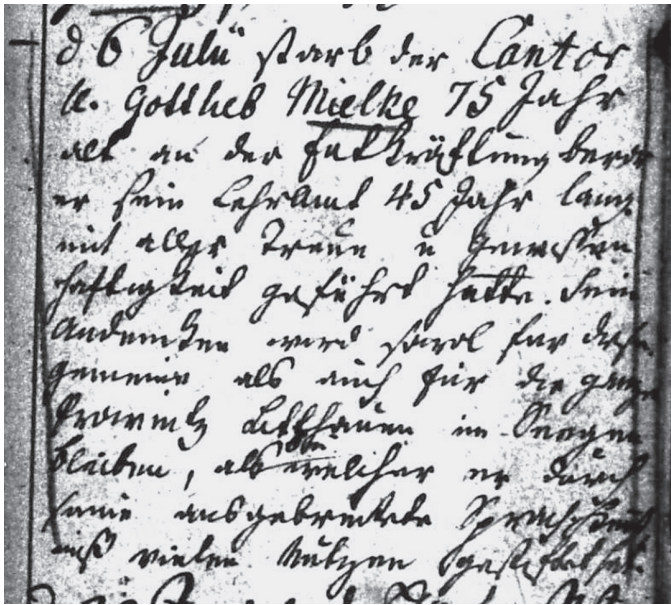 d 6 Julii starb der Cantor
C. Gottlieb Mielke 75 Jahr
alt an der Entkräftung
er sein Lehramt 45 Jahr lang
mit aller Treue u Gewissen
haftigkeit geführt hatte. Sein
Andencken wird sowol für diese
Gemeine als auch für die ganze
Provintz Litthauen im Seegen
bleiben, als welcher er durch
seine ausgebreitete Sprachkennt
niß vielen Nutzen gestiftet hat.